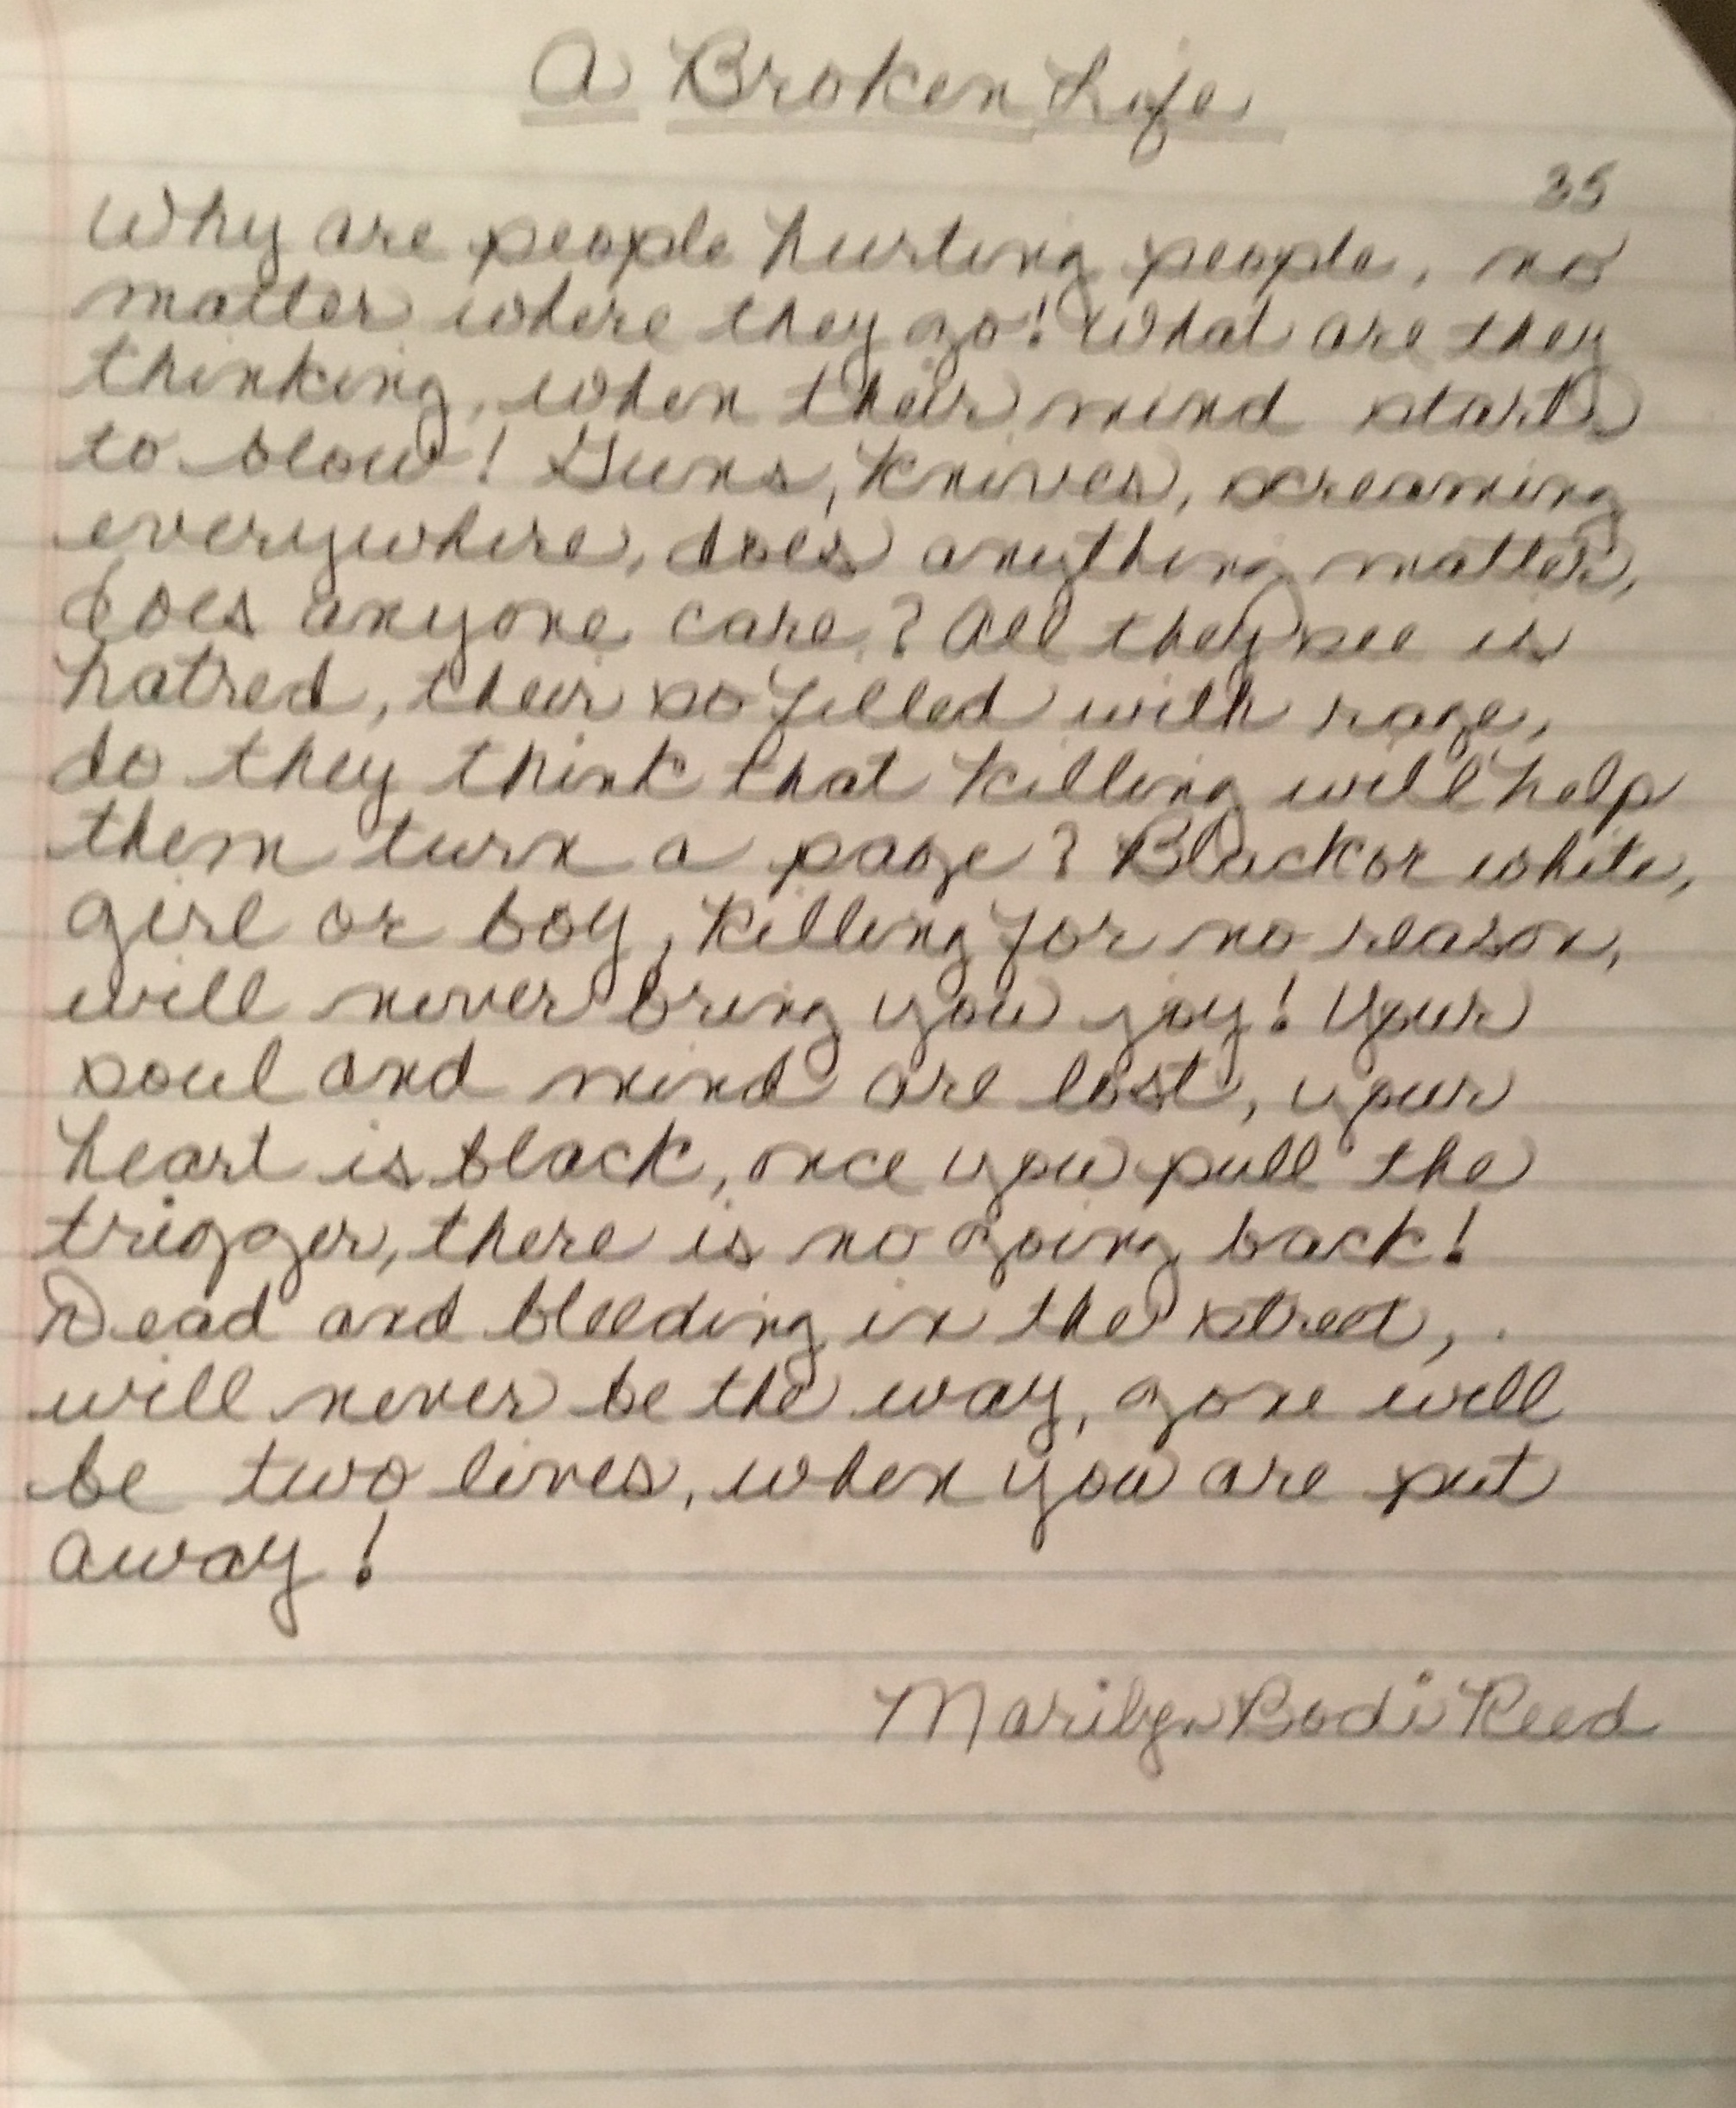 A Broken Life
35
Why are people hurting people, no
matter where they go! What are they
thinking, when their mind starts
to blow! Guns, knives, screaming
everywhere, does anything matter,
does anyone care? All they see is
hatred, their so filled with rage,
do they think that killing will help
them turn a page? Black or white,
girl or boy, killing for no reason,
will never bring you joy! Your
soul and mind are lost, your
heart is black, once you pull the
trigger, there is no going back!
Dead and bleeding in the street,
will never be the way, gone will
be two lives, when you are put
away!
Marilyn Bodi Reed